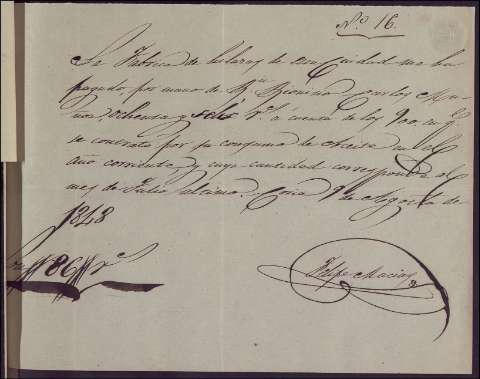 N.º 16.
La Fabrica de hilazas de esta Ciudad me ha
pagado, por mano de D.ⁿ Carlos
ochenta y seis r.ˢ á cuenta de los 900. en q.ᵉ
se contrató por su consumo de Aceite en el
año corriente, y cuya cantidad corresponde al
mes de Julio ultimo. Coria 9 de Agosto de
1848
Son 86 r.ˢ
Felipe Macias